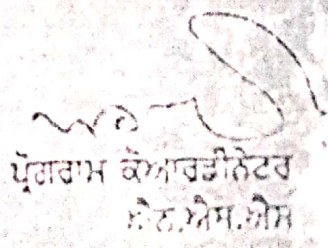 ਪ੍ਰੋਗਰਾਮ ਕੋਆਰਡੀਨੇਟਰ
ਐਨ.ਐਸ.ਐਸ